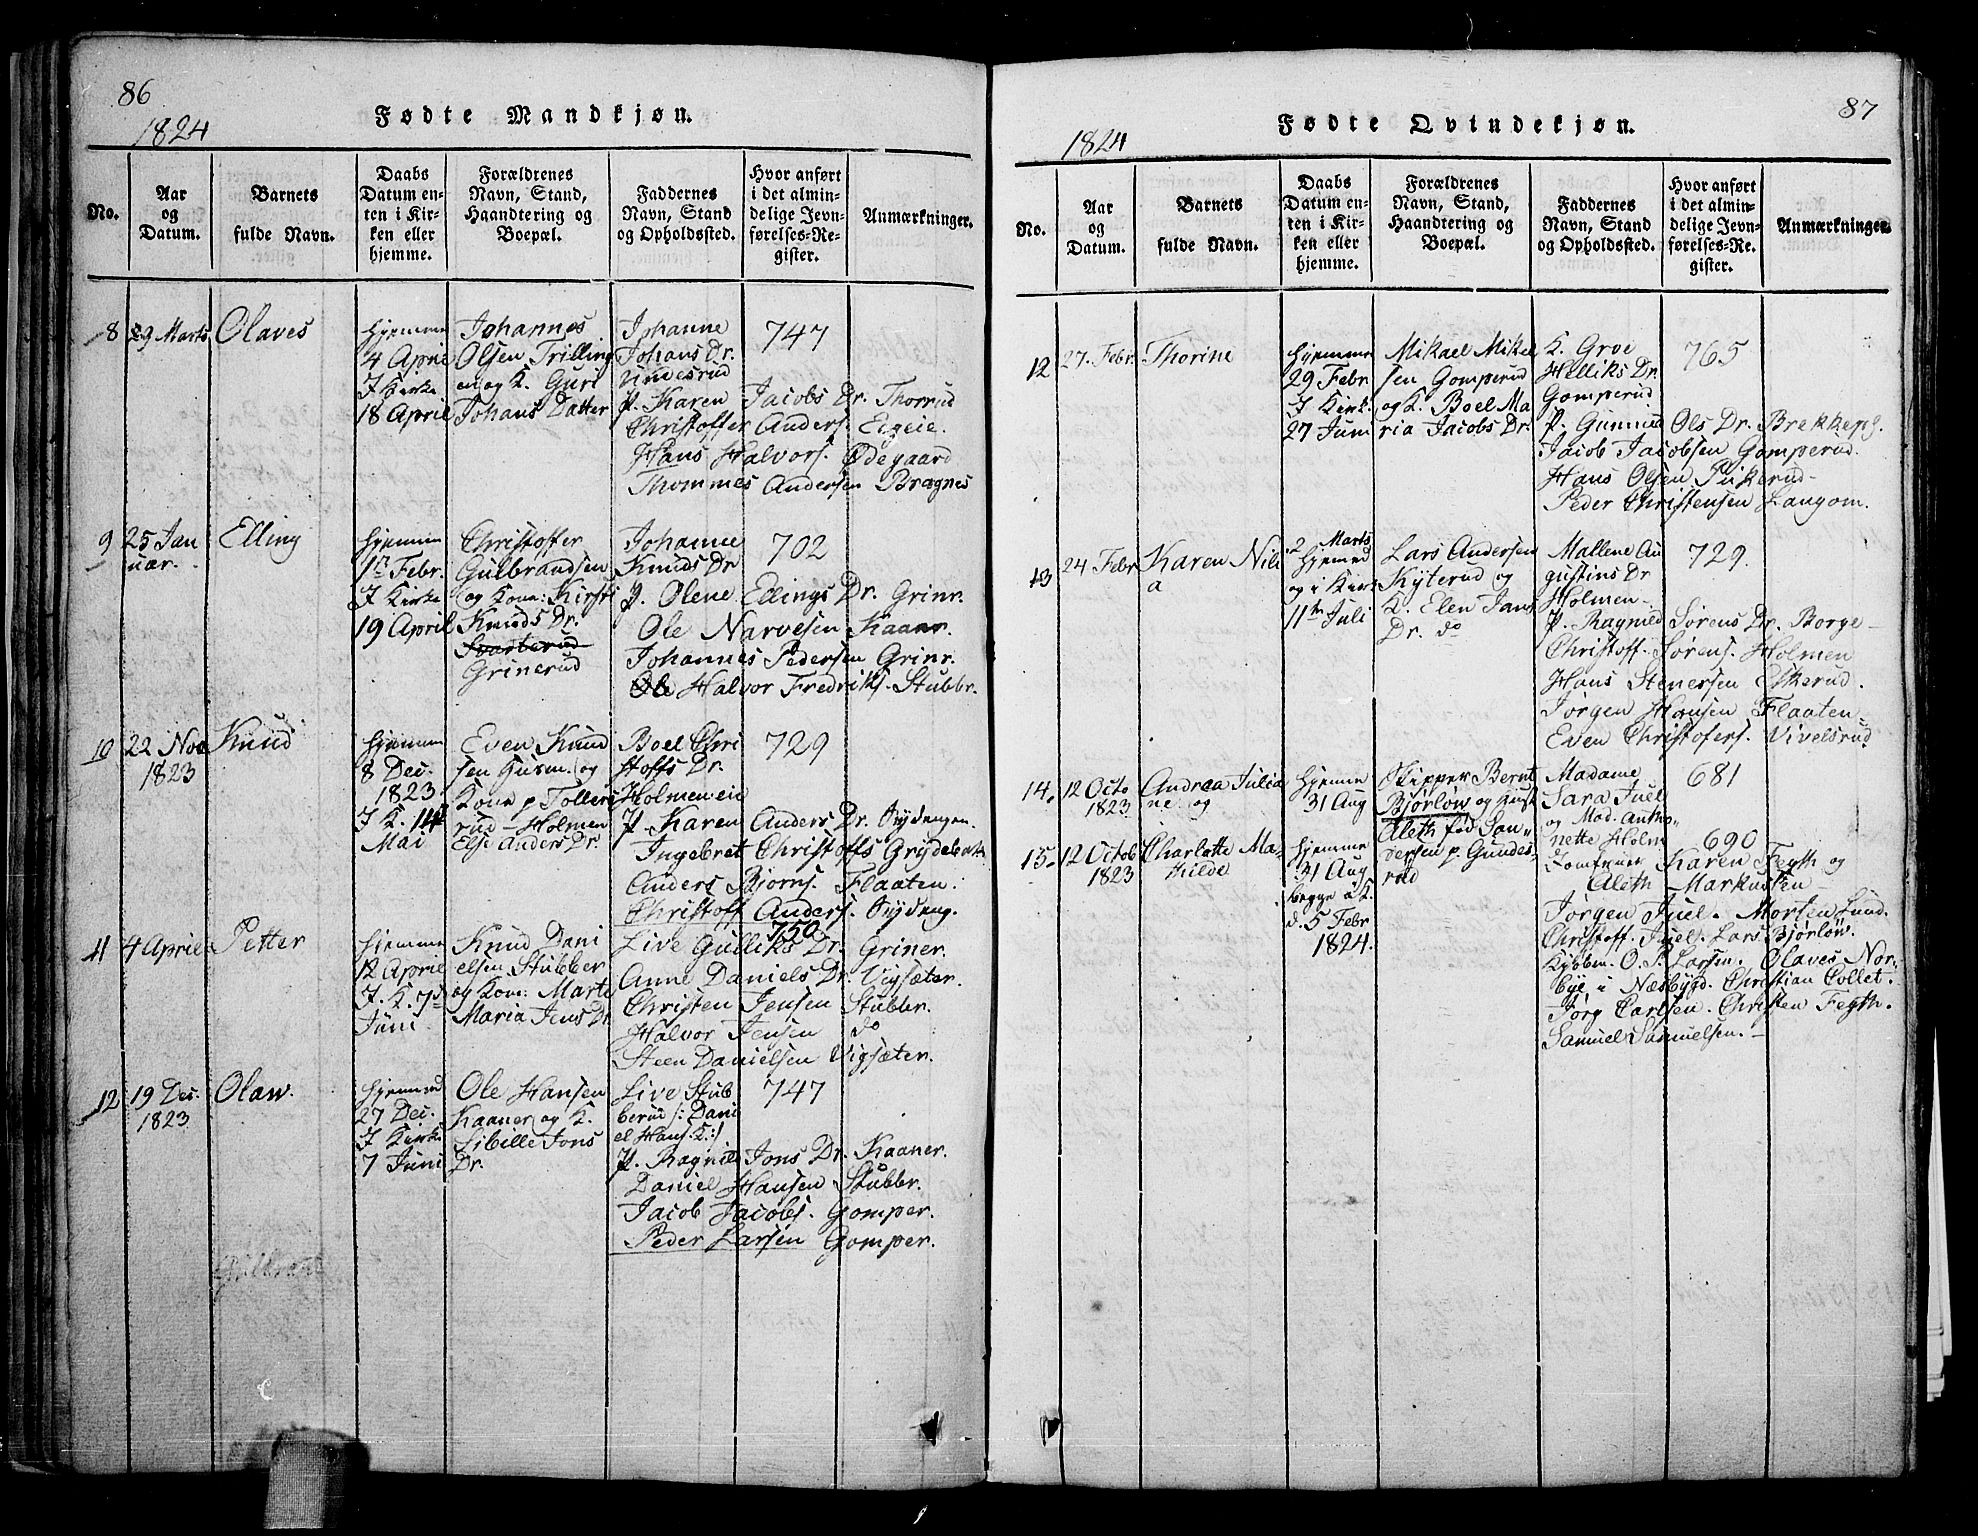 86
1824
Fødte Mandkjøn.
No.
Aar
og
Datum.
Barnets
fulde Navn.
Daabs
Datum en-
ten i Kir-
ken eller
hjemme.
Forældrenes
Navn, Stand,
Haandtering og
Boepæl.
Faddernes
Navn, Stand
og Opholdssted.
Hvor anført
i det almin-
delige Jevn-
førelses-Re-
gister.
Anmærkninger.
8
29 Marts
Olaves
Hjemme
4 April
I Kirke
18 April
Johannes
Olsen Trilling
en og K. Guri
Johans Datter
Johanne
Johans Dr.
Undesrud
P. Karen Jacobs Dr. Thorrud
Christoffer Anders. Eigeie.
Hans Halvors. Ødegaard
Thommes Andersen Bragnes
747
9
25 Jan
uar.
Elling
Hjemme
1ste Febr.
I Kirke
19 April
Christoffer
Gulbrandsen
og Kone: Kirsti
Knuds Dr.
Svarterud
Grinerud
Johanne
Knuds Dr
P. Olene Ellings Dr. Grinr.
Ole Narvesen Kaanr.
Johannes Pedersen Grinr.
Ole Halvor Fredriks. Stubbr.
702
10
22 Nov
1823
Knud
Hjemme
8 Dec.
1823
I K. 14
Mai
Even Knud
sen Husm. og
Kone p Tolleri
rud - Holmen
Else Anders Dr.
Boel Chri
stoffs Dr.
Holmeneie
P. Karen Anders Dr.
Ingebret Christoffs Grydebak
Anders Bjorns. Flaaten.
Christoff Anders.
729
11
4 April
Petter
Hjemme
12 April
I. K. 7de
Juni
Knud Dani
elsen Stubber
og Kone: Marte
Maria Jens Dr
Live Gulliks Dr. Griner.
Anne Daniels Dr. Vigsæter.
Christen Jensen Stubbr.
Halvor Jensen do
Steen Danielsen Vigsæter.
750
12
19 Dec.
1823
Olaw.
Hjemme
27 Dec.
I Kirke
7 Juni
Ole Hansen
Kaaner og K.
Sibille Jons
Dr.
Live Stub
berud /: Dani
el Hans. K:/
P. Ragnild Jons Dr. Kaaner.
Daniel Hansen Stubbr.
Jacob Jacobs. Gomper.
Peder Larsen Gomper.
747
87
1824
Fødte Qvindekjøn.
No.
Aar
og
Datum.
Barnets
fulde Navn.
Daabs
Datum en-
ten i Kir-
ken eller
hjemme.
Forældrenes
Navn, Stand,
Haandtering og
Boepæl.
Faddernes
Navn, Stand
og Opholdssted.
Hvor anført
i det almin-
delige Jevn-
førelses-Re-
gister.
Anmærkninger.
12
27. Febr.
Thorine
Hjemme
29 Febr
I Kirk.
27 Juni
Mikael Mikel
sen Gomperud
og K. Boel Ma
ria Jacobs Dr.
K. Groe
Helliks Dr.
Gomperud
P. Gunnild Ols Dr. Brekkepl.
Jacob Jacobsen Gomperud.
Hans Olsen
Peder Christensen Langom.
765
13
24 Febr
Karen Nili
a
2 Marts
Hjemme
og i Kirk
11te Juli
Lars Andersen
Kyterud og
K. Elen Jans
Dr. do
Mallene Au
gustins Dr
Holmen
P. Ragnild Sørens Dr. Borge -
Christoff. Sørens. Holmen
Hans Stenersen Eskerud.
Jørgen Hansen Flaaten -
Even Christofers. Vivelsrud
729.
14.
12 Octo
1823
Andrea Julia
ne og
Hjemme
31 Aug
Skipper Bernt
Bjørløw og Kust
Aleth fød San-
dersen p Gundes-
rud
Madame
Sara Juel
og Mad. Antho-
nette Holm
Jomfruer Karen Fegth og
Aleth Markussen -
Jørgen Juel. Morten Lund.
Christoff. Juel. Lars Bjørløw.
Kjøbm. O. S. Larsen. Olaves Nor-
bye i Næsbygd. Christian Collet.
Jörg Carlsen. Christen Fegth.
Samuel Samuelsen. -
681
15.
12 Octob
1823
Charlotte Ma-
thilde
Hjemme
31 Aug
begge i K.
d. 5 Febr
1824.
690